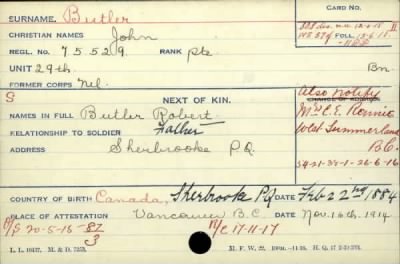 SURNAME. Butler
CARD NO.
CHRISTIAN NAMES John
REGL. NO. 75529 RANK Pte
UNIT 29th. Bn.
FORMER CORPS Nil
S
NEXT OF KIN.
Also notify
CHANGE OF ADDRESS
NAMES IN FULL Butler Robert
Mrs C.E. Rennie
RELATIONSHIP TO SOLDIER Father
West Summerland
ADDRESS Sherbrooke P.Q.
B.C.
COUNTRY OF BIRTH Canada, Sherbrooke PQ DATE Feb 22nd 1884
PLACE OF ATTESTATION Vancouver B.C. DATE Nov. 16th. 1914
20-5-15
17-11-17
L. L. M. & D.
M. F. W. 22.